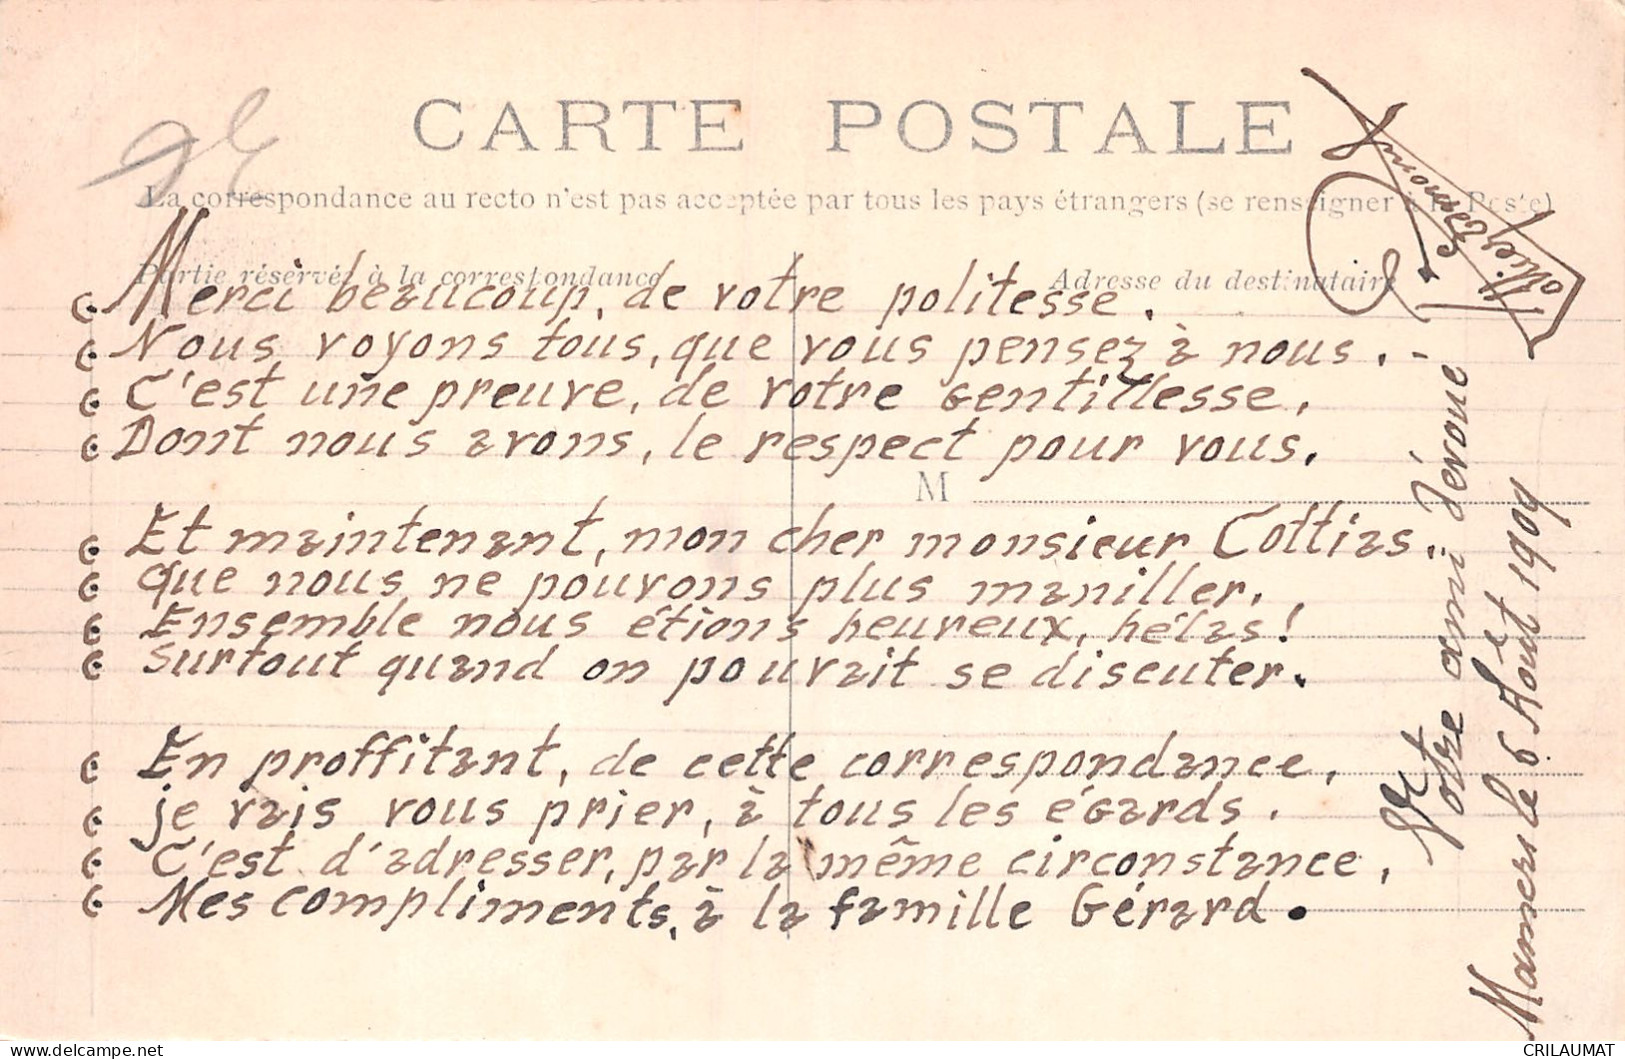 CARTE POSTALE
La correspondance au recto n'est pas acceptée par tous les pays étrangers (se renseigner à la Poste)
Partie réservée à la correspondance
Adresse du destinataire
Merci beaucoup, de votre politesse.
Nous voyons tous, que vous pensez à nous. -
C'est une preuve, de votre gentillesse,
Dont nous avons, le respect pour vous.
M
Et maintenant, mon cher monsieur Cottias.
que nous ne pouvons plus maniller.
Ensemble nous étions heureux, hélas!
surtout quand on pouvait se discuter.
En proffitant, de cette correspondance,
je vais vous prier, à tous les égards.
C'est d'adresser, par la même circonstance,
Mes compliments, à la famille Gérard.
Votre ami dévoué
Mamers le 6 Août 1904
CRILAUMAT